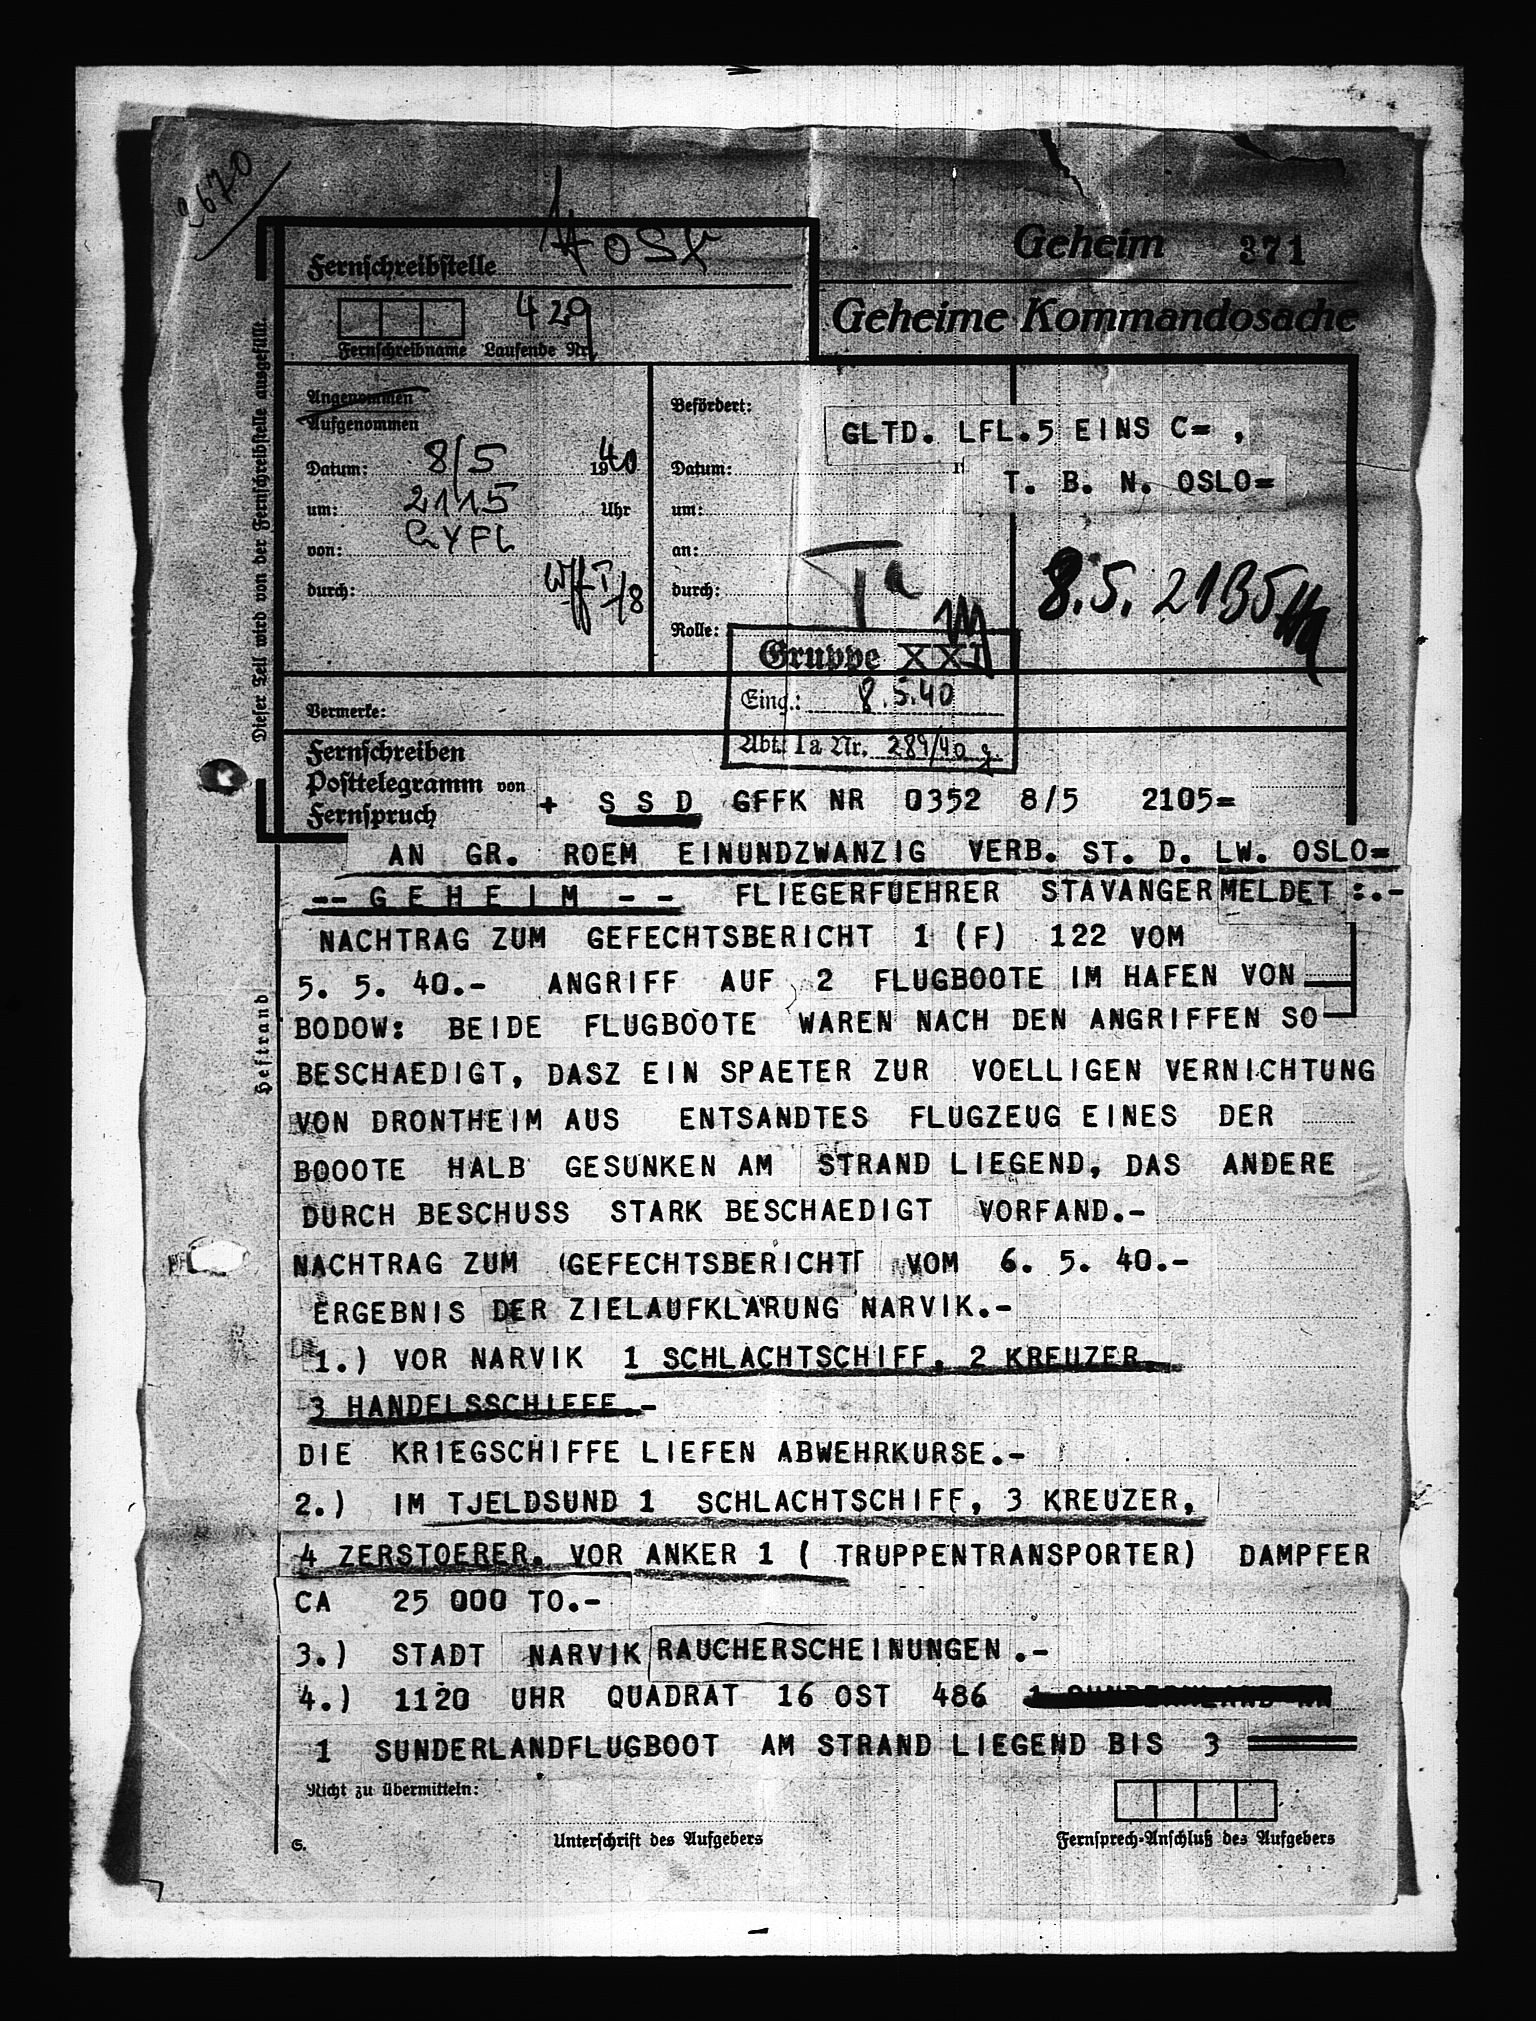 2670
Geheim 371
Fernschreibstelle
Geheime Kommandosache
429
Fernschreibname Laufende Nr.
Dieser Teil wird von der Fernschreibstelle ausgefüllt.
Angenommen
Aufgenommen
Datum: 8/5 1940
um: 2115 Uhr
von:
durch:
Befördert:
GLTD. LFL.5 EINS C= ,
Datum: 19
T. B. N. OSLO=
um:
an:
durch:
Rolle:
Ia
8.5. 2135
Gruppe XXI
Eing.: 8.5.40
Abt. Ia Nr. 289/40 g.
Vermerke:
Fernschreiben
Posttelegramm von
Fernspruch
+ S S D GFFK NR 0352 8/5 2105=
AN GR. ROEM EINUNDZWANZIG VERB. ST. D. LW. OSLO=
-- G E H E I M - - FLIEGERFUEHRER STAVANGER MELDET :.-
NACHTRAG ZUM GEFECHTSBERICHT 1 (F) 122 VOM
5. 5. 40.- ANGRIFF AUF 2 FLUGBOOTE IM HAFEN VON
BODOW: BEIDE FLUGBOOTE WAREN NACH DEN ANGRIFFEN SO
BESCHAEDIGT, DASZ EIN SPAETER ZUR VOELLIGEN VERNICHTUNG
VON DRONTHEIM AUS ENTSANDTES FLUGZEUG EINES DER
BOOOTE HALB GESUNKEN AM STRAND LIEGEND, DAS ANDERE
DURCH BESCHUSS STARK BESCHAEDIGT VORFAND.-
NACHTRAG ZUM GEFECHTSBERICHT VOM 6. 5. 40.-
ERGEBNIS DER ZIELAUFKLARUNG NARVIK.-
1.) VOR NARVIK 1 SCHLACHTSCHIFF, 2 KREUZER,
3 HANDELSSCHIFFE.-
DIE KRIEGSCHIFFE LIEFEN ABWEHRKURSE.-
2.) IM TJELDSUND 1 SCHLACHTSCHIFF, 3 KREUZER,
4 ZERSTOERER. VOR ANKER 1 ( TRUPPENTRANSPORTER) DAMPFER
CA 25 000 TO.-
3.) STADT NARVIK RAUCHERSCHEINUNGEN .-
4.) 1120 UHR QUADRAT 16 OST 486
1 SUNDERLANDFLUGBOOT AM STRAND LIEGEND BIS 3
Heftrand
Nicht zu übermitteln:
G.
Unterschrift des Aufgebers
Fernsprech-Anschluß des Aufgebers